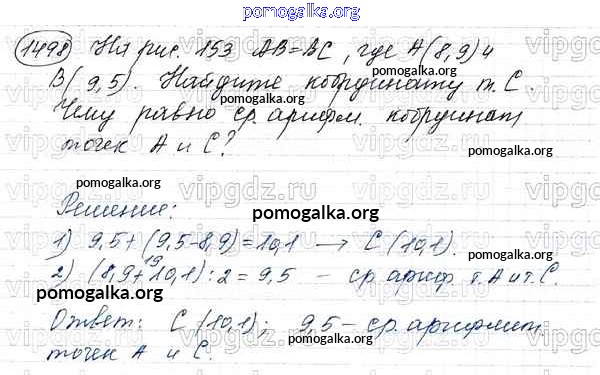 pomogalka.org
1498 На рис. 153 АВ=ВС, где А(8,9) и
В(9,5). Найдите координату т. С.
Чему равно ср. арифм. координат
точек А и С?
pomogalka.org
Решение:
pomogalka.org
1) 9,5+(9,5-8,9)=10,1 → С(10,1).
19
2) (8,9+10,1):2=9,5 – ср. ариф. т. А и т. С.
pomogalka.org
Ответ: С(10,1); 9,5 – ср. арифмет.
точек А и С.
pomogalka.org
vipgdz.ru